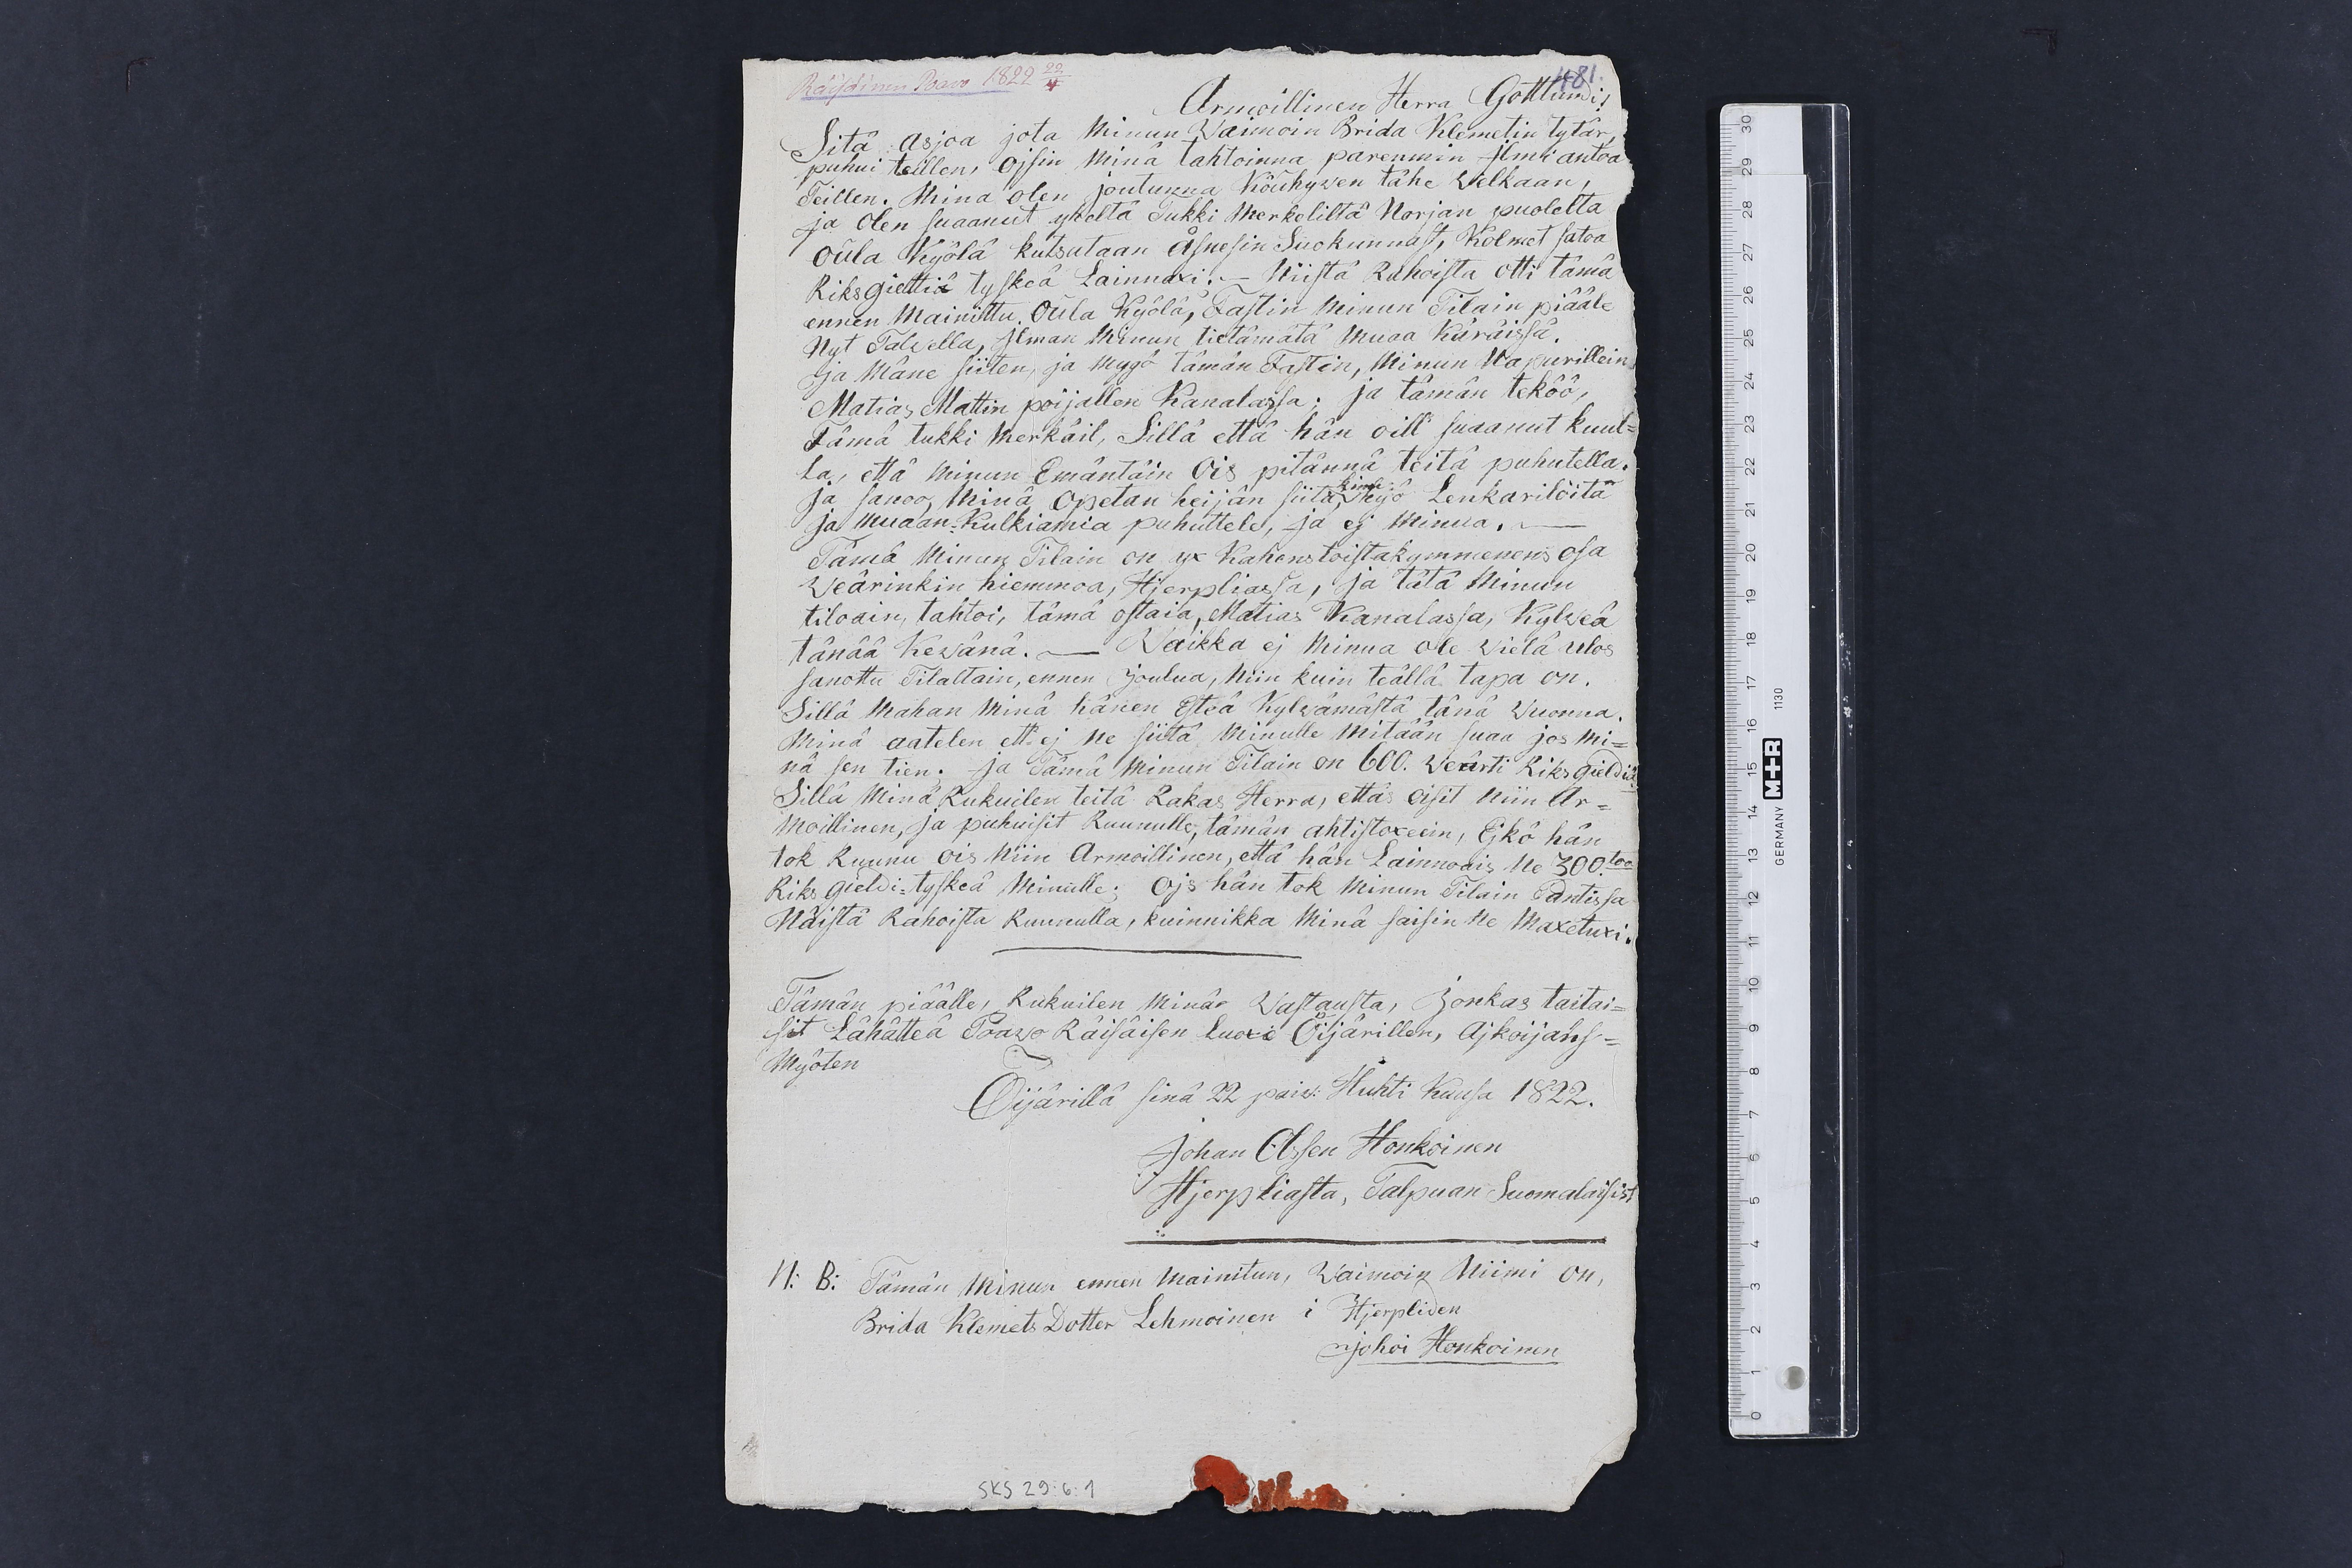 Räisäinen Paavo 1822 22/4
481.
Armoillinen Herra Gottlundi!
Sitä asjoa jota Minun Vaimoin Brida Klemetin tytär,
puhui teillen, Ojsin Minä tahtoinna paremmin ilmi antoa
Teillen. Minä olen joutunna Köuhyven tähe Velkaan,
ja olen suaanut yheltä Tukki Merkeliltä Norjan puolelta
Oula Kyölä kutsutaan Åsnesin Suokunnast, Kolmet satoa
Riksgiettiä tyskeä Lainnaxi. — Niistä Rahoista otti tämä
ennen Mainittu Oula Kyölä, Fastin Minun Tilain piääle
Nyt Talvella, Ilman Minun tietämätä Muaa Käräissä.
ja Mäne siiten, ja Myyö tämän Fastin, Minun Napurillein
Matias Mattin poijallen Kanalassa; ja tämän teköö,
Tämä tukki Merkäil, Sillä että hän oill suaanut kuul=
la, että minun Emäntäin Ois pitännä teitä puhutella.
ja sanoo, Minä Opetan heijän siitä, Myö Lenkarilöitä
ja Muaan-Kulkiamia puhuttele, ja ej Minua. —
Tämä Minun Tilain on yx Kahenstoistakymmenens osa
Veärinkin hiemmoa, Hjerpliassa, ja tätä Minun
tiloain, tahtoi, tämä ostaia, Matias Kanalassa, Kylveä
tänää Kevänä. — Vaikka ej Minua ole vielä ulos
sanottu Tilaltain, ennen Joulua, Niin kuin teällä tapa on.
Sillä Mahan Minä hänen Esteä Kylvämästä tänä Vuonna.
Minä aatelen ett. ej ne siitä Minulle Mitään suaa jos Mi=
nä sen tien. ja Tämä Minun Tilain on 600. Veärti Riksgieldiä.
Sillä Minä Rukuilen teitä Rakas Herra, ettäs oisit Niin Ar=
moillinen, ja puhuisit Ruunulle, tämän ahtistoxeein, Ejkö hän
tok Ruunu ois Niin Armoillinen, että hän Lainnoais Ne 300.toa
Riksgieldi=tyskeä Minulle; Ojs hän tok Minun Tilain Pantissa
Näistä Rahoista Ruunulla, kuinnikka Minä saisin Ne Maxetuxi.
Tämän piäälle, Rukuilen Minär Vastausta, Jonkas taitai=
sit Lähätteä Poavo Räisäisen Luoxi Öijärillen, Ajkoijans=
Myöten
Öijärillä sinä 22 paiv: Huhti Kuusa 1822.
Johan Olssen Honkoinen
Hjerpliasta, Talpuan Suomalaisist
N: B: Tämän Minun ennen Mainitun, Vaimoin Niimi on,
Brida Klemets Dotter Lehmoinen i Hjerpliden
Johoi Honkoinen
SKS 29:6:1
0 1 2 3 4 5 6 7 8 9 10 11 12 13 14 15 16 17 18 19 20 21 22 23 24 25 26 27 28 29 30
GERMANY M+R 1130